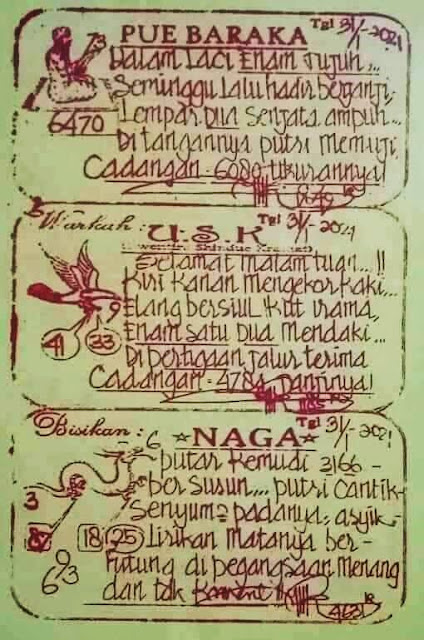 PUE BARAKA
Tgl 31/1-2021
Dalam Laci Enam Tujuh...
Seminggu Lalu hadir berganji;
Lempar Dua Senjata ampuh...
Di tangannya putri memuji,
Cadangan = 6080, tikurannya!
73
6470
Warkah :
U.S.K
Tgl 31/1-2021
Selamat malam tuan...!!
Kiri Kanan mengekor kaki...
Elang bersiul ikut irama,
Enam Satu Dua Mendaki...
Di pertigaan jalur terima
Cadangan = 4784, janjinya!
9
41 33
Bisikan :
NAGA
Tgl 31/1-2021
6
putar Kemudi 3166 -
ber Susun,,, putri Cantik-
Senyum = padanya; asyik-
Lirikan Matanya ber-
Putung di pegangsaan Menang
dan tdk
3
87 18 25
6 9 3